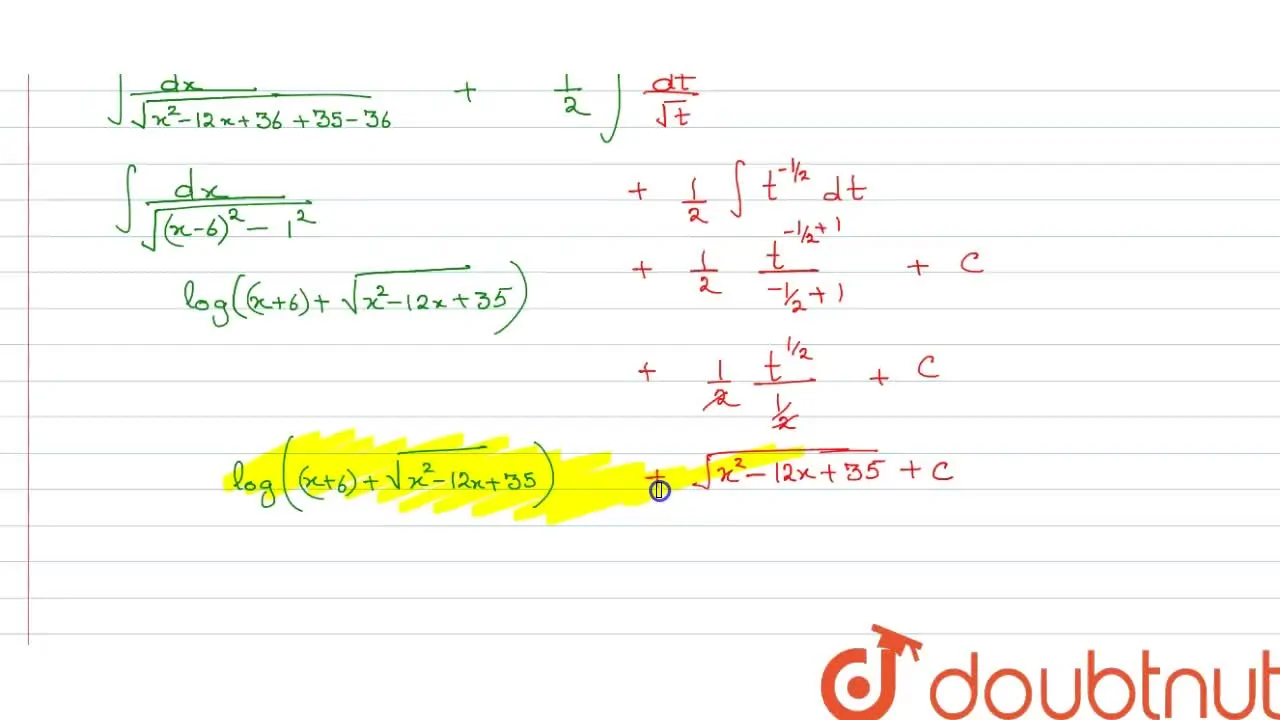 ∫ dx/√(x²-12x+36+35-36) + 1/2 ∫ dt/√t
∫ dx/√((x-6)² - 1²) + 1/2 ∫ t^(-1/2) dt
log((x+6)+√(x²-12x+35)) + 1/2 t^(-1/2+1)/(-1/2+1) + C
+ 1/2 t^(1/2)/(1/2) + C
log((x+6)+√(x²-12x+35)) + √(x²-12x+35) + C
doubtnut